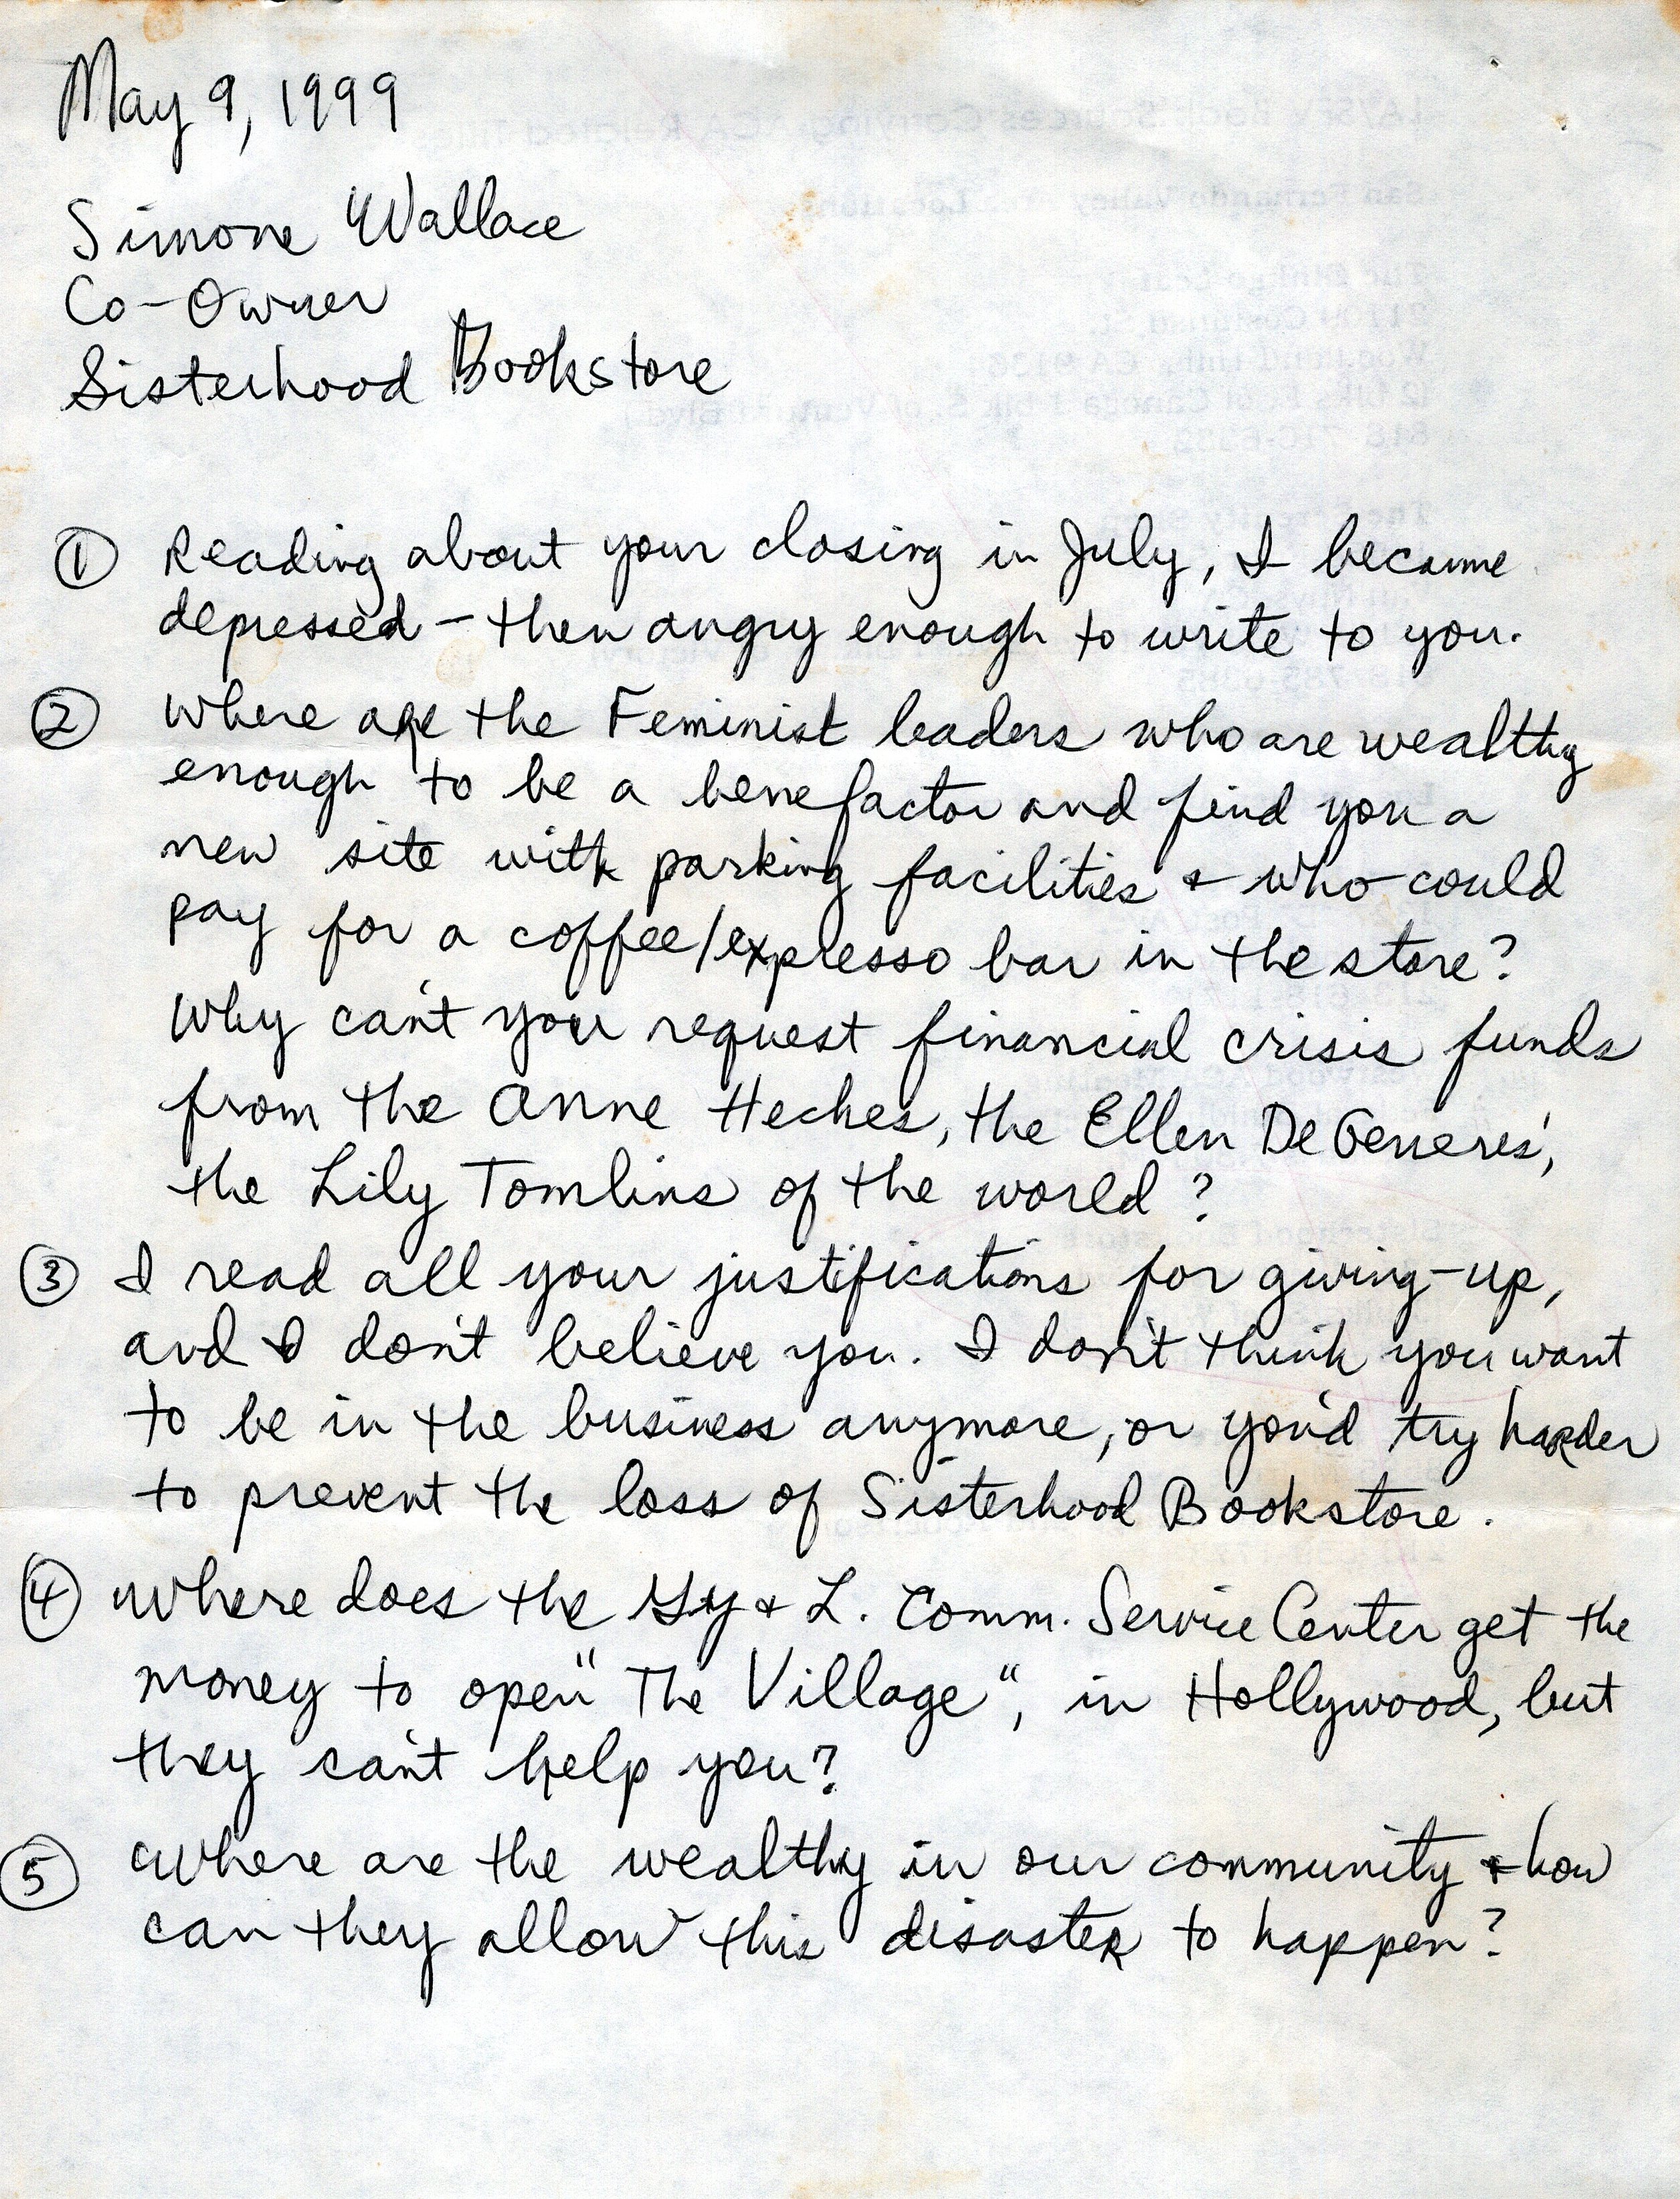 May 9, 1999
Simone Wallace
Co-Owner
Sisterhood Bookstore
① Reading about your closing in July, I became
depressed – then angry enough to write to you.
② Where are the Feminist leaders who are wealthy
enough to be a benefactor and find you a
new site with parking facilities & who could
pay for a coffee/expresso bar in the store?
Why can't you request financial crisis funds
from the Anne Heches, the Ellen DeGeneres',
the Lily Tomlins of the world?
③ I read all your justifications for giving-up,
and I don't believe you. I don't think you want
to be in the business anymore, or you'd try harder
to prevent the loss of Sisterhood Bookstore.
④ Where does the & L. Comm. Service Center get the
money to open "The Village", in Hollywood, but
they can't help you?
⑤ Where are the wealthy in our community & how
can they allow this disaster to happen?